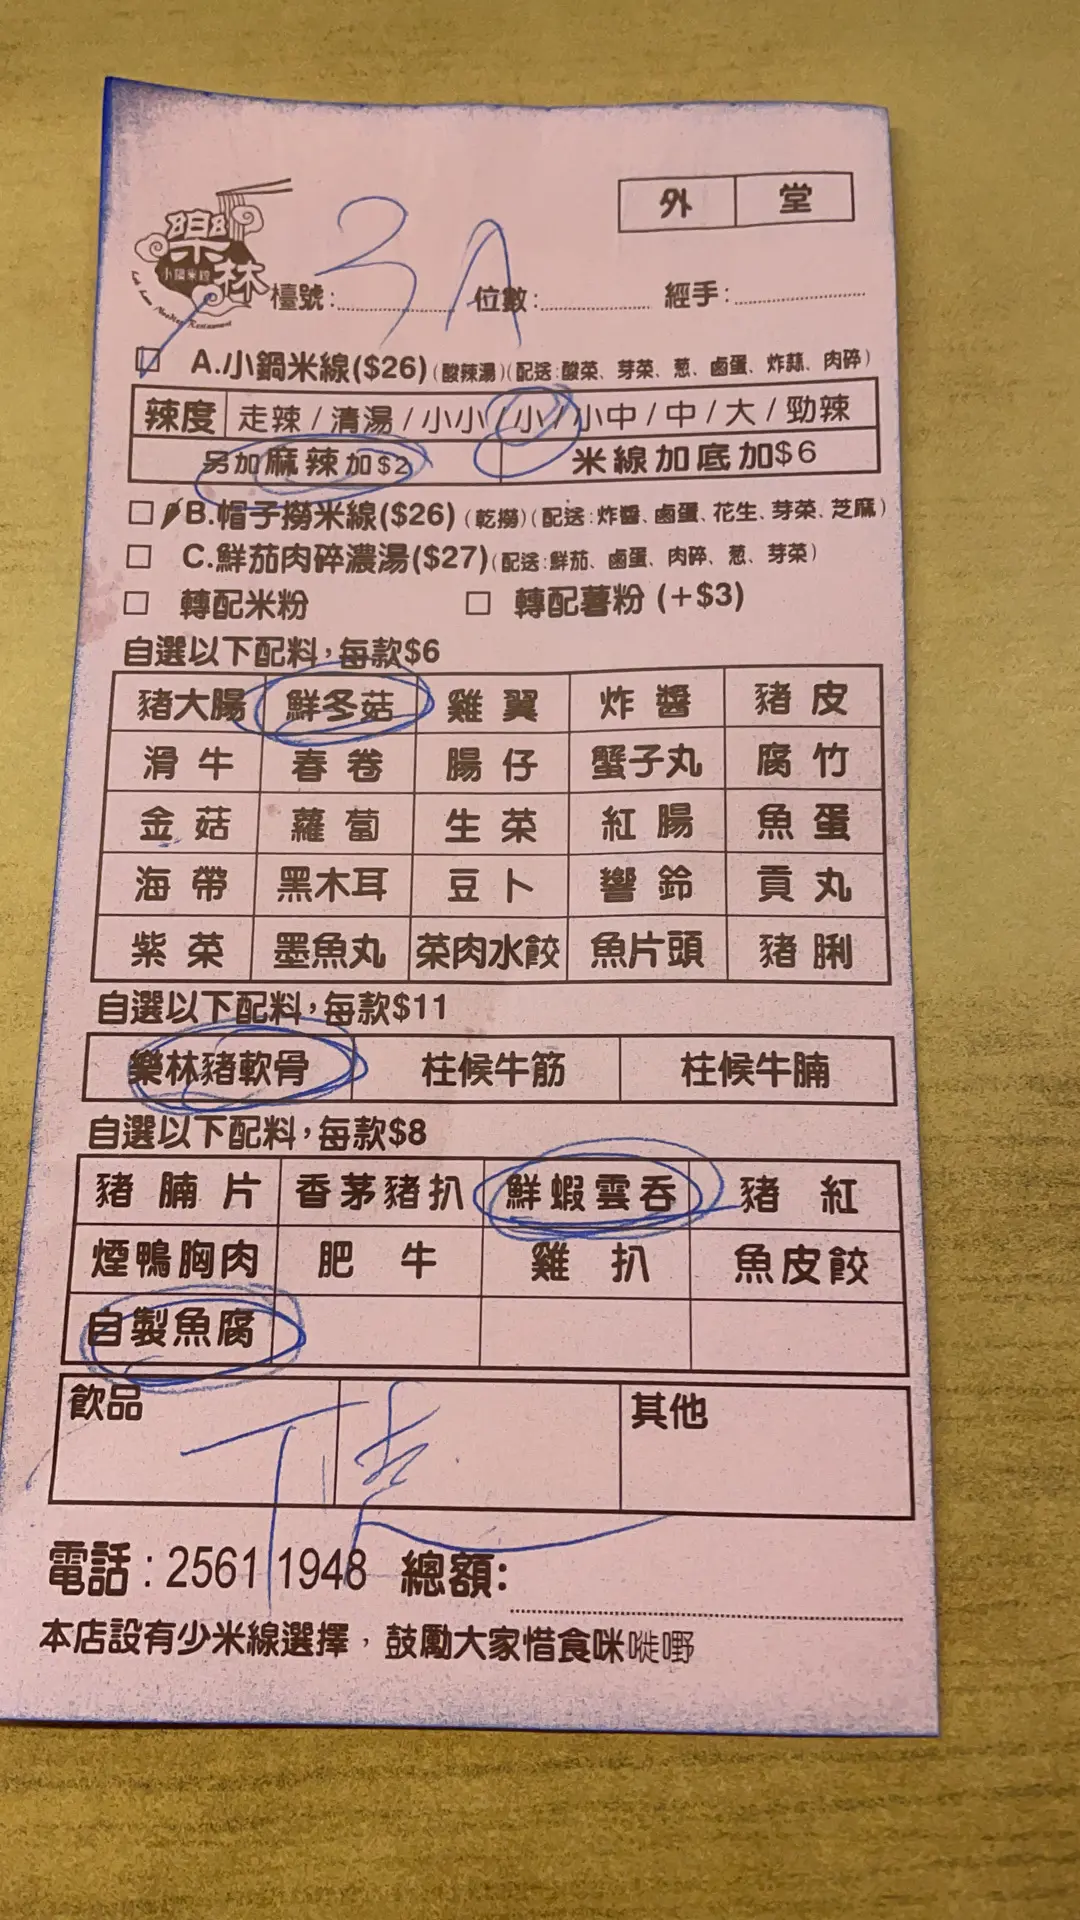 外 堂
樂林
小鍋米線
3A
檯號: 位數: 經手:
A.小鍋米線($26)(酸辣湯)(配送:酸菜、芽菜、葱、鹵蛋、炸蒜、肉碎)
辣度 走辣/清湯/小小/小/小中/中/大/勁辣
另加麻辣加$2 米線加底加$6
B.帽子撈米線($26)(乾撈)(配送:炸醬、鹵蛋、花生、芽菜、芝麻)
C.鮮茄肉碎濃湯($27)(配送:鮮茄、鹵蛋、肉碎、葱、芽菜)
轉配米粉 轉配薯粉(+$3)
自選以下配料,每款$6
豬大腸 鮮冬菇 雞翼 炸醬 豬皮
滑牛 春卷 腸仔 蟹子丸 腐竹
金菇 蘿蔔 生菜 紅腸 魚蛋
海帶 黑木耳 豆卜 響鈴 貢丸
紫菜 墨魚丸 菜肉水餃 魚片頭 豬脷
自選以下配料,每款$11
樂林豬軟骨 柱候牛筋 柱候牛腩
自選以下配料,每款$8
豬腩片 香茅豬扒 鮮蝦雲吞 豬紅
煙鴨胸肉 肥牛 雞扒 魚皮餃
自製魚腐
飲品 其他
電話:2561 1948 總額:
本店設有少米線選擇,鼓勵大家惜食咪嘥嘢